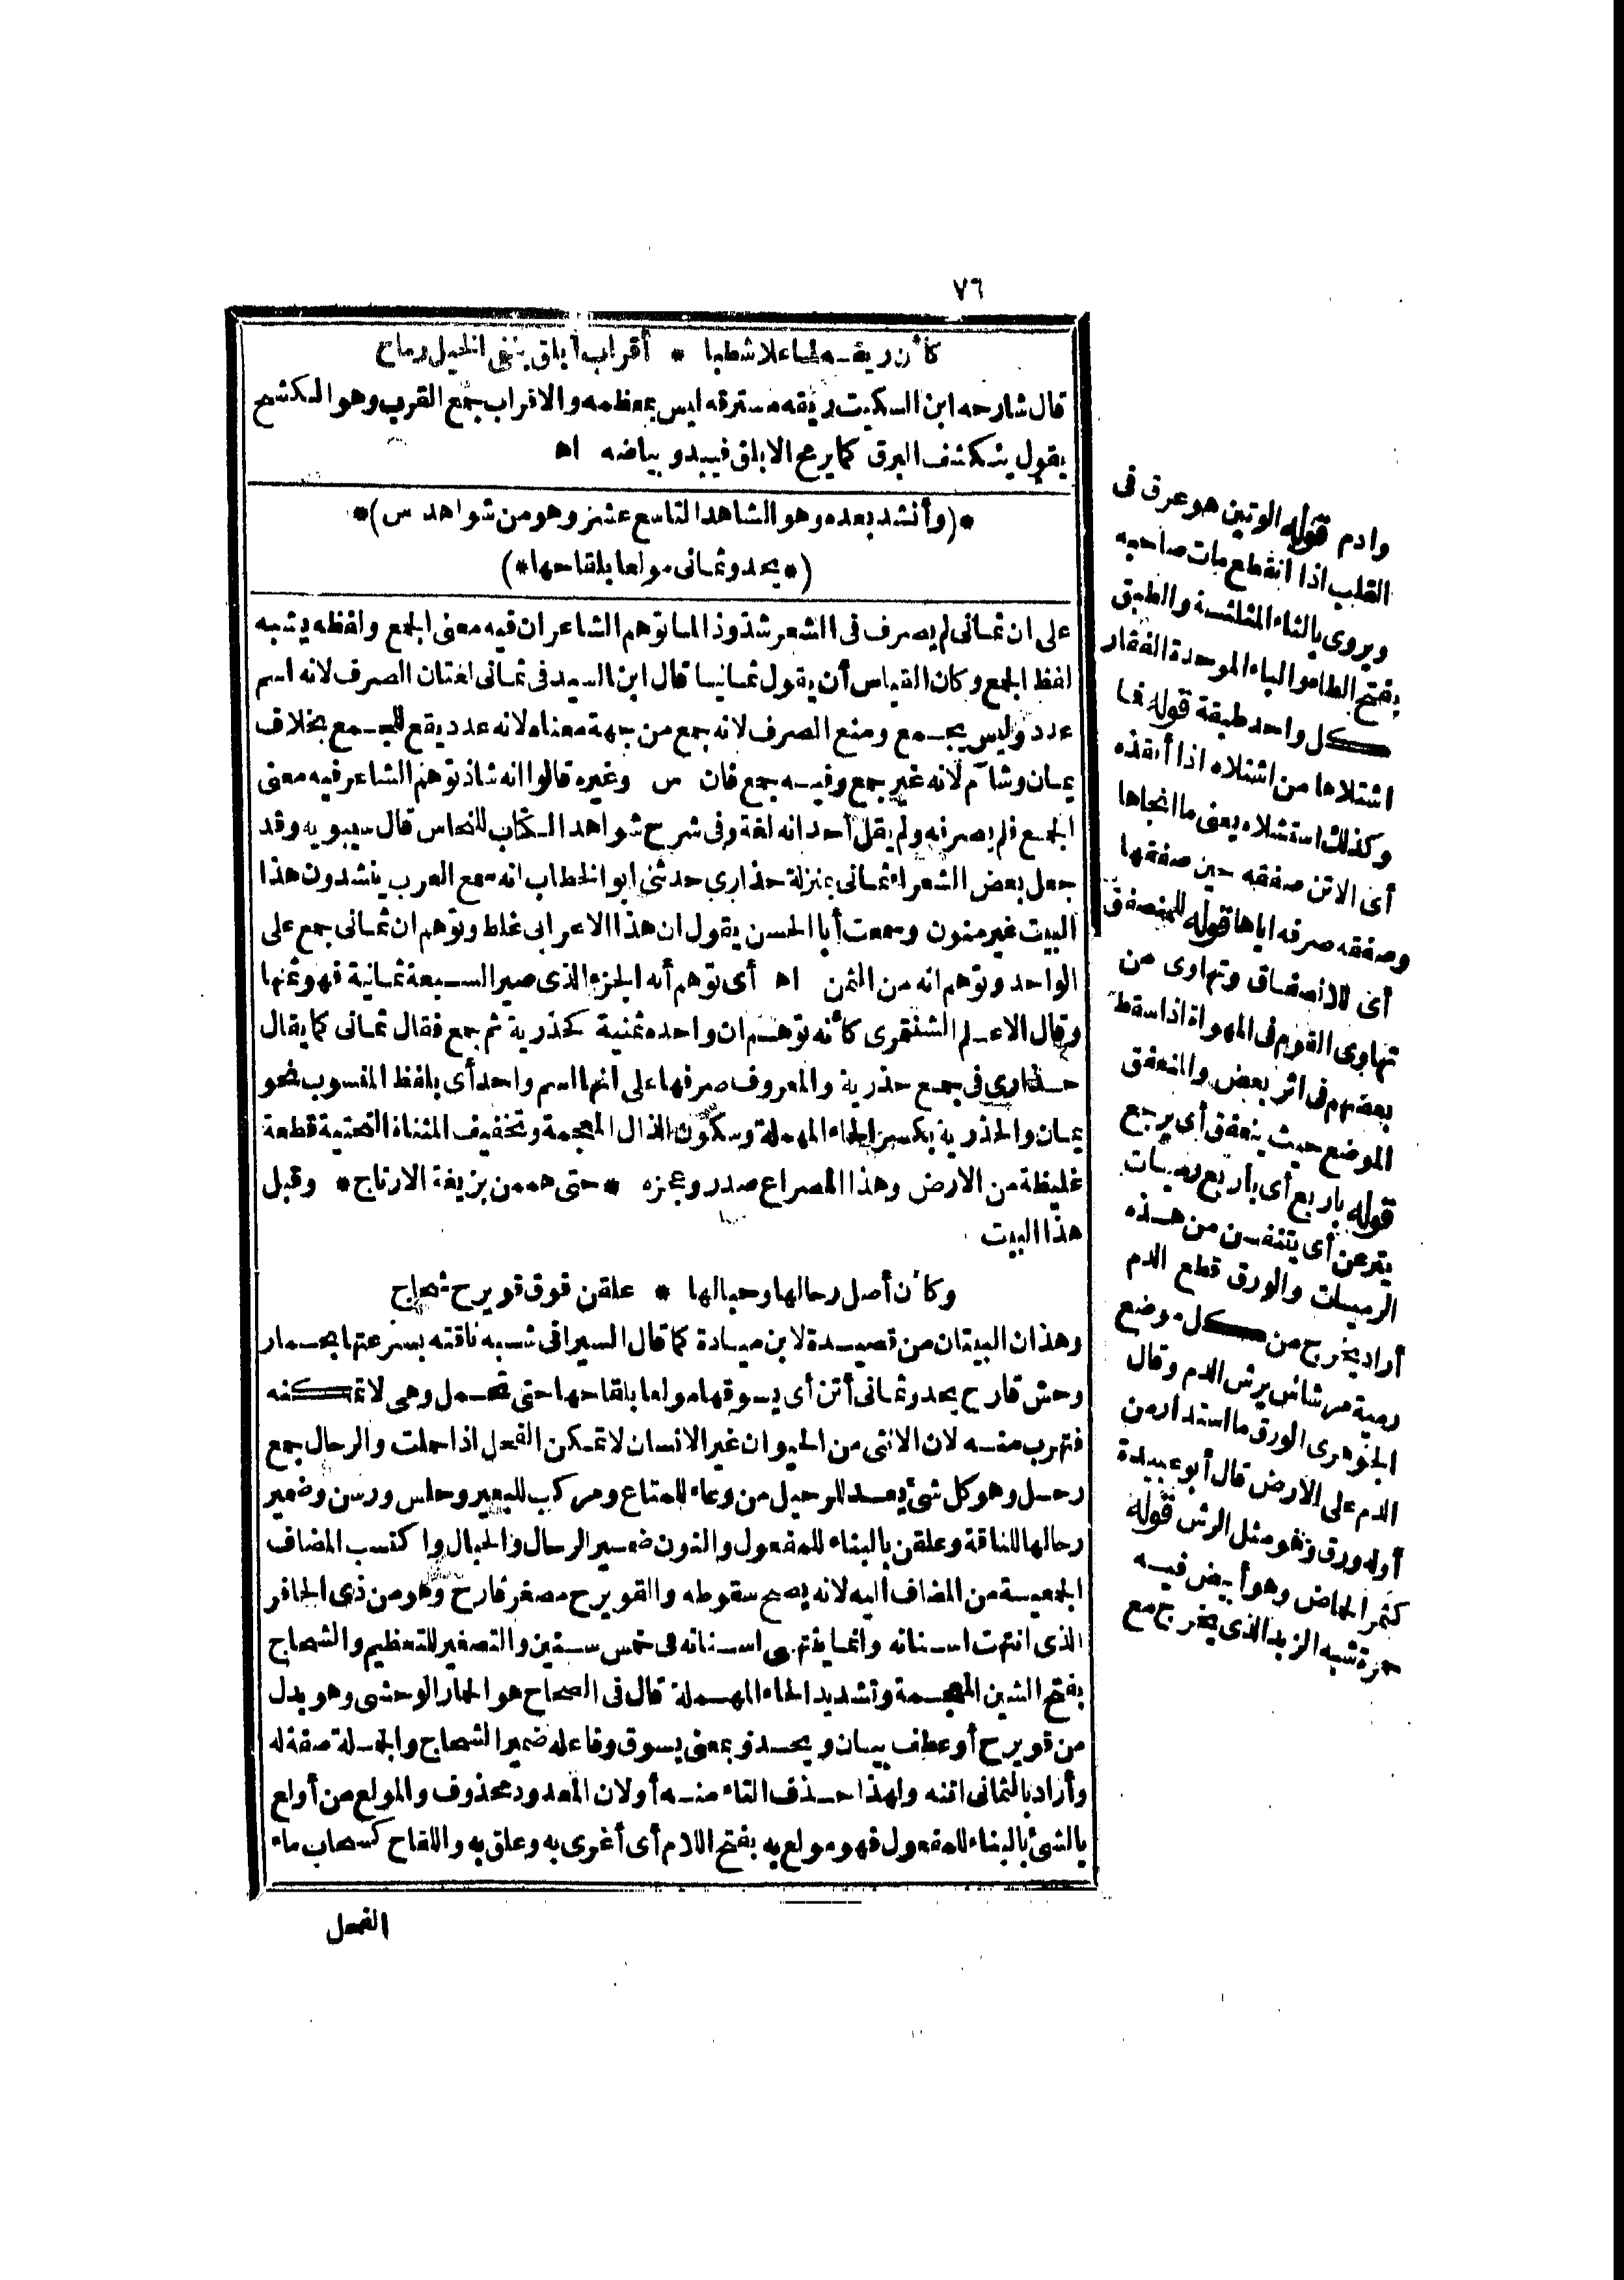 ٧٦
كأن ريقه لما علا شطبا * أقراب أبلق ينفى الخيل رماح
قال شارحه ابن السكيت ريقه مسترقه ليس بمعظمه والاقراب جمع القرب وهو الكشح
يقول يتكشف البرق كما يرمح الابلق فيبدو بياضه اه
*(وأنشد بعده وهو الشاهد التاسع عشر وهو من شواهد س)*
(*يحدو ثمانى مولعا بلقاحها*)
على ان ثمانى لم يصرف فى الشعر شذوذا لما توهم الشاعر ان فيه معنى الجمع ولفظه يشبه
لفظ الجمع وكان القياس أن يقول ثمانيا قال ابن السيد فى ثمانى لغتان الصرف لانه اسم
عدد وليس بجمع ومنع الصرف لانه جمع من جهة معناه لانه عدد يقع للجمع بخلاف
يمان وشآم لانه غير جمع وفيه جمع فان س وغيره قالوا انه شاذ توهم الشاعر فيه معنى
الجمع فلم يصرفه ولم يقل أحد انه لغة وفى شرح شواهد الكتاب للنحاس قال سيبويه وقد
جعل بعض الشعراء ثمانى بمنزلة حذارى حدثنى ابو الخطاب انه سمع العرب ينشدون هذا
البيت غير منون وسمعت أبا الحسن يقول ان هذا الاعرابى غلط وتوهم ان ثمانى جمع على
الواحد وتوهم انه من الثمن اه أى توهم أنه الجزء الذى صير السبعة ثمانية فهو ثمنها
وقال الاعلم الشنتمرى كأنه توهم ان واحده ثمنية كحذرية ثم جمع فقال ثمانى كما يقال
حذارى فى جمع حذرية والمعروف صرفها على انها اسم واحد أى بلفظ المنسوب نحو
يمان والحذرية بكسر الحاء المهملة وسكون الذال المعجمة وتخفيف المثناة التحتية قطعة
غليظة من الارض وهذا المصراع صدر وعجزه *حتى هممن بزيغة الارتاج* وقبل
هذا البيت
وكأن أصل رحالها وحبالها * علقن فوق قويرح شحاج
وهذان البيتان من قصيدة لابن ميادة كما قال السيرافى شبه ناقته بسرعتها بحمار
وحش قارح يحدو ثمانى أتن أى يسوقها مولعا بلقاحها حتى تحمل وهى لاتمكنه
فتهرب منه لان الانثى من الحيوان غير الانسان لاتمكن الفحل اذا حملت والرحال جمع
رحل وهو كل شئ يعد للرحيل من وعاء للمتاع ومركب للبعير وحلس ورسن وضمير
رحالها للناقة وعلقن بالبناء للمفعول والنون ضمير الرحال والحبال واكتسب المضاف
الجمعية من المضاف اليه لانه يصح سقوطه والقويرح مصغر قارح وهو من ذى الحافر
الذى انتهت اسنانه وانما ينتهى اسنانه فى خمس سنين والتصغير للتعظيم والشحاج
بفتح الشين المعجمة وتشديد الحاء المهملة قال فى الصحاح هو الحمار الوحشى وهو بدل
من قويرح أو عطف بيان ويحدو بمعنى يسوق وفاعله ضمير الشحاج والجملة صفة له
وأراد بالثمانى اتنه ولهذا حذف التاء منه أو لان المعدود محذوف والمولع من أولع
بالشئ بالبناء للمفعول فهو مولع به بفتح اللام أى أغرى به وعلق به واللقاح كسحاب ماء
الفحل
وادم قوله الوتين هو عرق فى
القلب اذا انقطع مات صاحبه
ويروى بالثاء المثلثة والطبق
بفتح الطاء والباء الموحدة الفقار
كل واحد طبقة قوله فما
اشتلاها من اشتلاه اذا أنقذه
وكذلك استشلاه يعنى ما انجاها
أى الاتن صفقه حين صفقها
وصفقه صرفه اياها قوله للمنصفق
أى للانصفاق وتهاوى من
تهاوى القوم فى المهواة اذا سقط
بعضهم فى اثر بعض والمنعفق
الموضع حيث ينعفق أى يرجع
قوله باربع أى بأربع رميات
ينزعن أى يتنفسن من هذه
الرميات والورق قطع الدم
أراد يخرج من كل موضع
رمية مرشاش يرش الدم وقال
الجوهرى الورق ما استدار من
الدم على الارض قال أبو عبيدة
أوله ورق وهو مثل الرش قوله
كثمر الحماض وهو أبيض فيه
حمرة شبه الزبد الذى يخرج مع